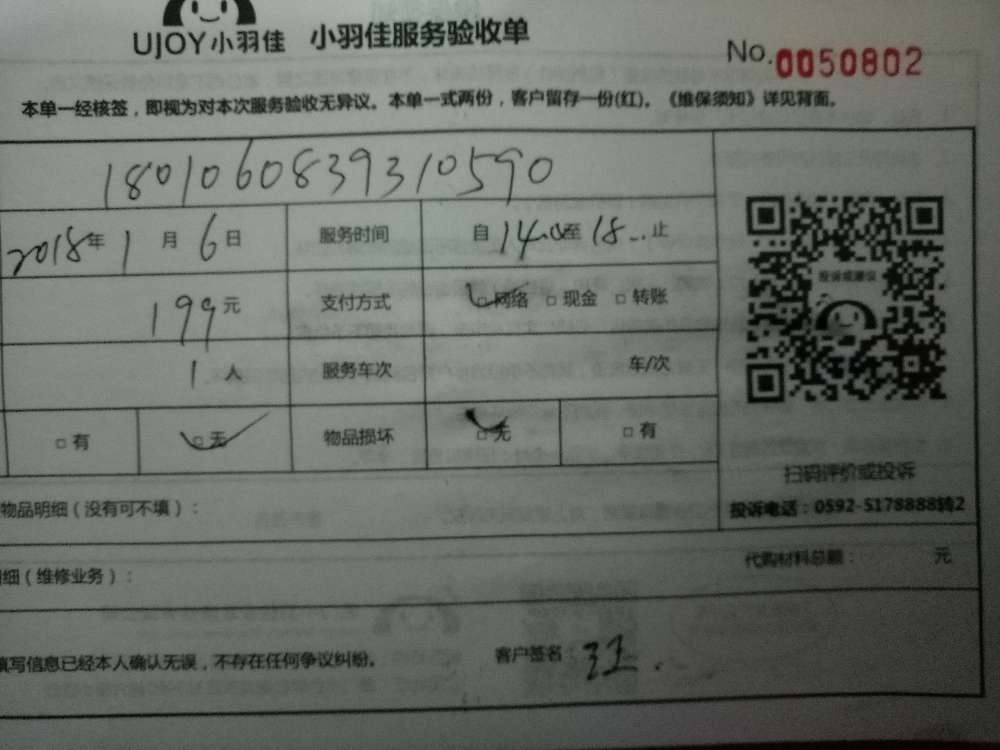 UJOY小羽佳 小羽佳服务验收单
No.0050802
本单一经核签，即视为对本次服务验收无异议。本单一式两份，客户留存一份(红)。《维保须知》详见背面。
1801060839310590
2018年1月6日 服务时间 自14.00至18...止
199元 支付方式 □网络 □现金 □转账
投诉或建议
1人 服务车次 车/次
□有 □无 物品损坏 □无 □有
扫码评价或投诉
物品明细（没有可不填）：
投诉电话：0592-5178888转2
细（维修业务）： 代购材料总额： 元
填写信息已经本人确认无误，不存在任何争议纠纷。 客户签名：